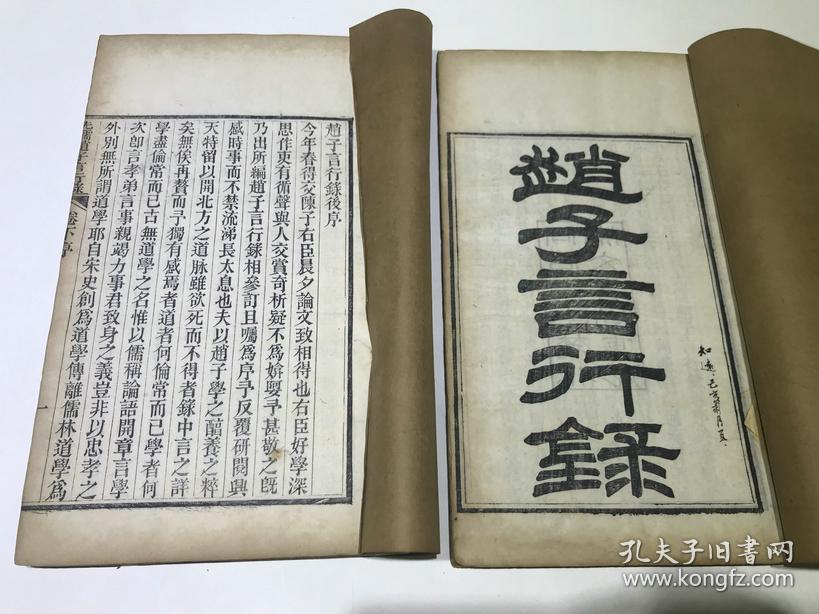 趙子言行錄後序
今年春得交陳子右臣晨夕論文致相得也右臣好學深
思作吏有循聲與人交賞奇析疑不為媕婀予甚敬之既
乃出所編趙子言行錄相參訂且囑為序予反覆研閱興
感時事而不禁流涕長太息也夫以趙子學之醇養之粹
天特留以開北方之道脉雖欲死而不得者錄中言之詳
矣無俟再贅而予獨有感焉者道者何倫常而已學者何
學盡倫常而已古無道學之名惟以儒稱論語開章言學
次卽言孝弟言事親竭力事君致身之義豈非以忠孝之
外別無所謂道學耶自宋史創為道學傳離儒林道學為
先儒趙子言行錄
卷下序
一
趙子言行錄
知遠
孔夫子旧书网
www.kongfz.com